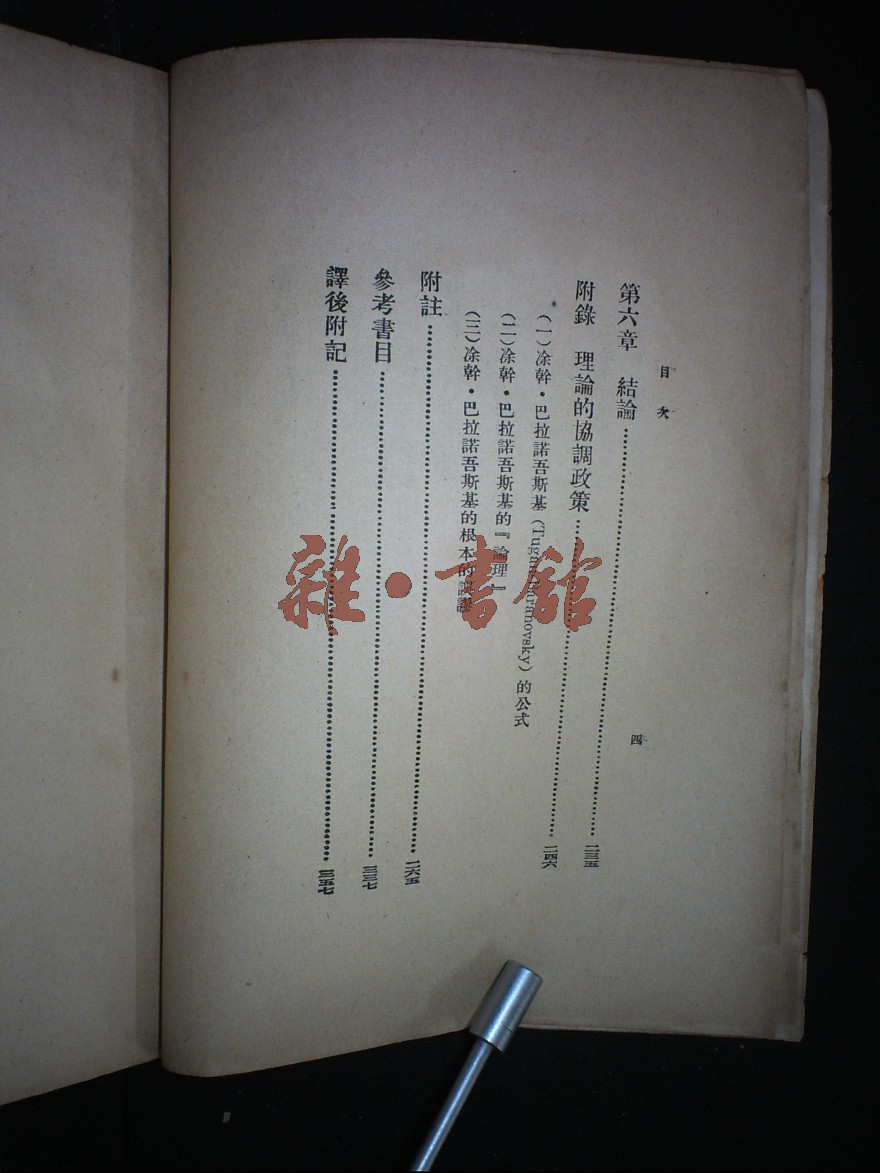 目次
四
第六章　結論…………二三五
附錄　理論的協調政策…………二四六
(一)凃幹・巴拉諾吾斯基(Tugan-Baranovsky)的公式
(二)凃幹・巴拉諾吾斯基的『論理』
(三)凃幹・巴拉諾吾斯基的根本的誤謬
附註…………二六五
參考書目…………三三七
譯後附記…………三五七
雜・書舘